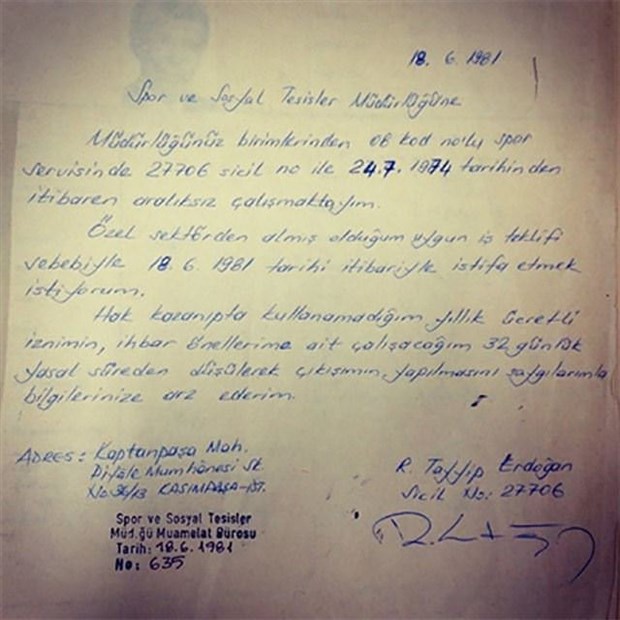 18. 6. 1981
Spor ve Sosyal Tesisler Müdürlüğüne
Müdürlüğünüz birimlerinden 06 kod no'lu spor
servisinde 27706 sicil no ile 24.7.1974 tarihinden
itibaren aralıksız çalışmaktayım.
Özel sektörden almış olduğum uygun iş teklifi
sebebiyle 18.6.1981 tarihi itibariyle istifa etmek
istiyorum.
Hak kazanıpta kullanamadığım yıllık ücretli
iznimin, ihbar önellerime ait çalışacağım 32 günlük
yasal süreden düşülerek çıkışımın, yapılmasını saygılarımla
bilgilerinize arz ederim.
ADRES: Kaptanpaşa Mah.
Piyale Mumhanesi Sk.
No: KASIMPAŞA-İST.
R. Tayyip Erdoğan
Sicil No: 27706
Spor ve Sosyal Tesisler
Müd.ğü Muamelat Bürosu
Tarih: 18.6.1981
No: 635